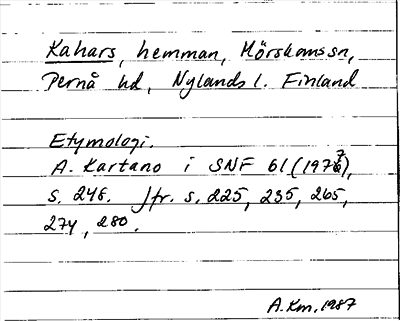 Kahars, hemman, Mörskomssn,
Pernå hd, Nylands l. Finland
Etymologi.
A. Kartano i SNF 61 (1977),
s. 248. Jfr. s. 225, 235, 265,
274, 280.
A. Km, 1987